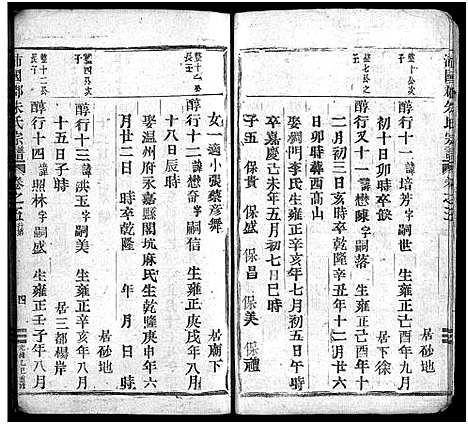 沛國郡朱氏宗譜 卷之五
居砂地
醇行十一 諱培芳字嗣世 生雍正己酉年十月
初十日卯時卒餘 居下徐
整七公之子
醇行又十一 諱懋暕字嗣落 生雍正己酉年九
二月初三日亥時卒乾隆辛丑年十二月廿六
日卯時葬西高山
娶周門李氏生雍正辛亥年七月初五日午時
卒嘉慶己未年五月初七日巳時
子五 保貴 保盛 保昌 保美 保禮
女一適小張蔡彥舞
整十一公長子
醇行十二 諱懋奇字嗣信 生雍正庚戌年八月
十八日辰時 居廟下
娶溫州府永嘉縣閣坑麻氏生乾隆庚申年六
月廿二日 時卒乾隆 年 月 日 時
整四公次子
醇行十三 諱洪玉字嗣美 生雍正辛亥年八月
十五日子時 居砂地
居三都楊岸
整十二公長子
醇行十四 諱照林字嗣盛 生雍正壬子年八月
沛國郡朱氏宗譜 卷之五 四